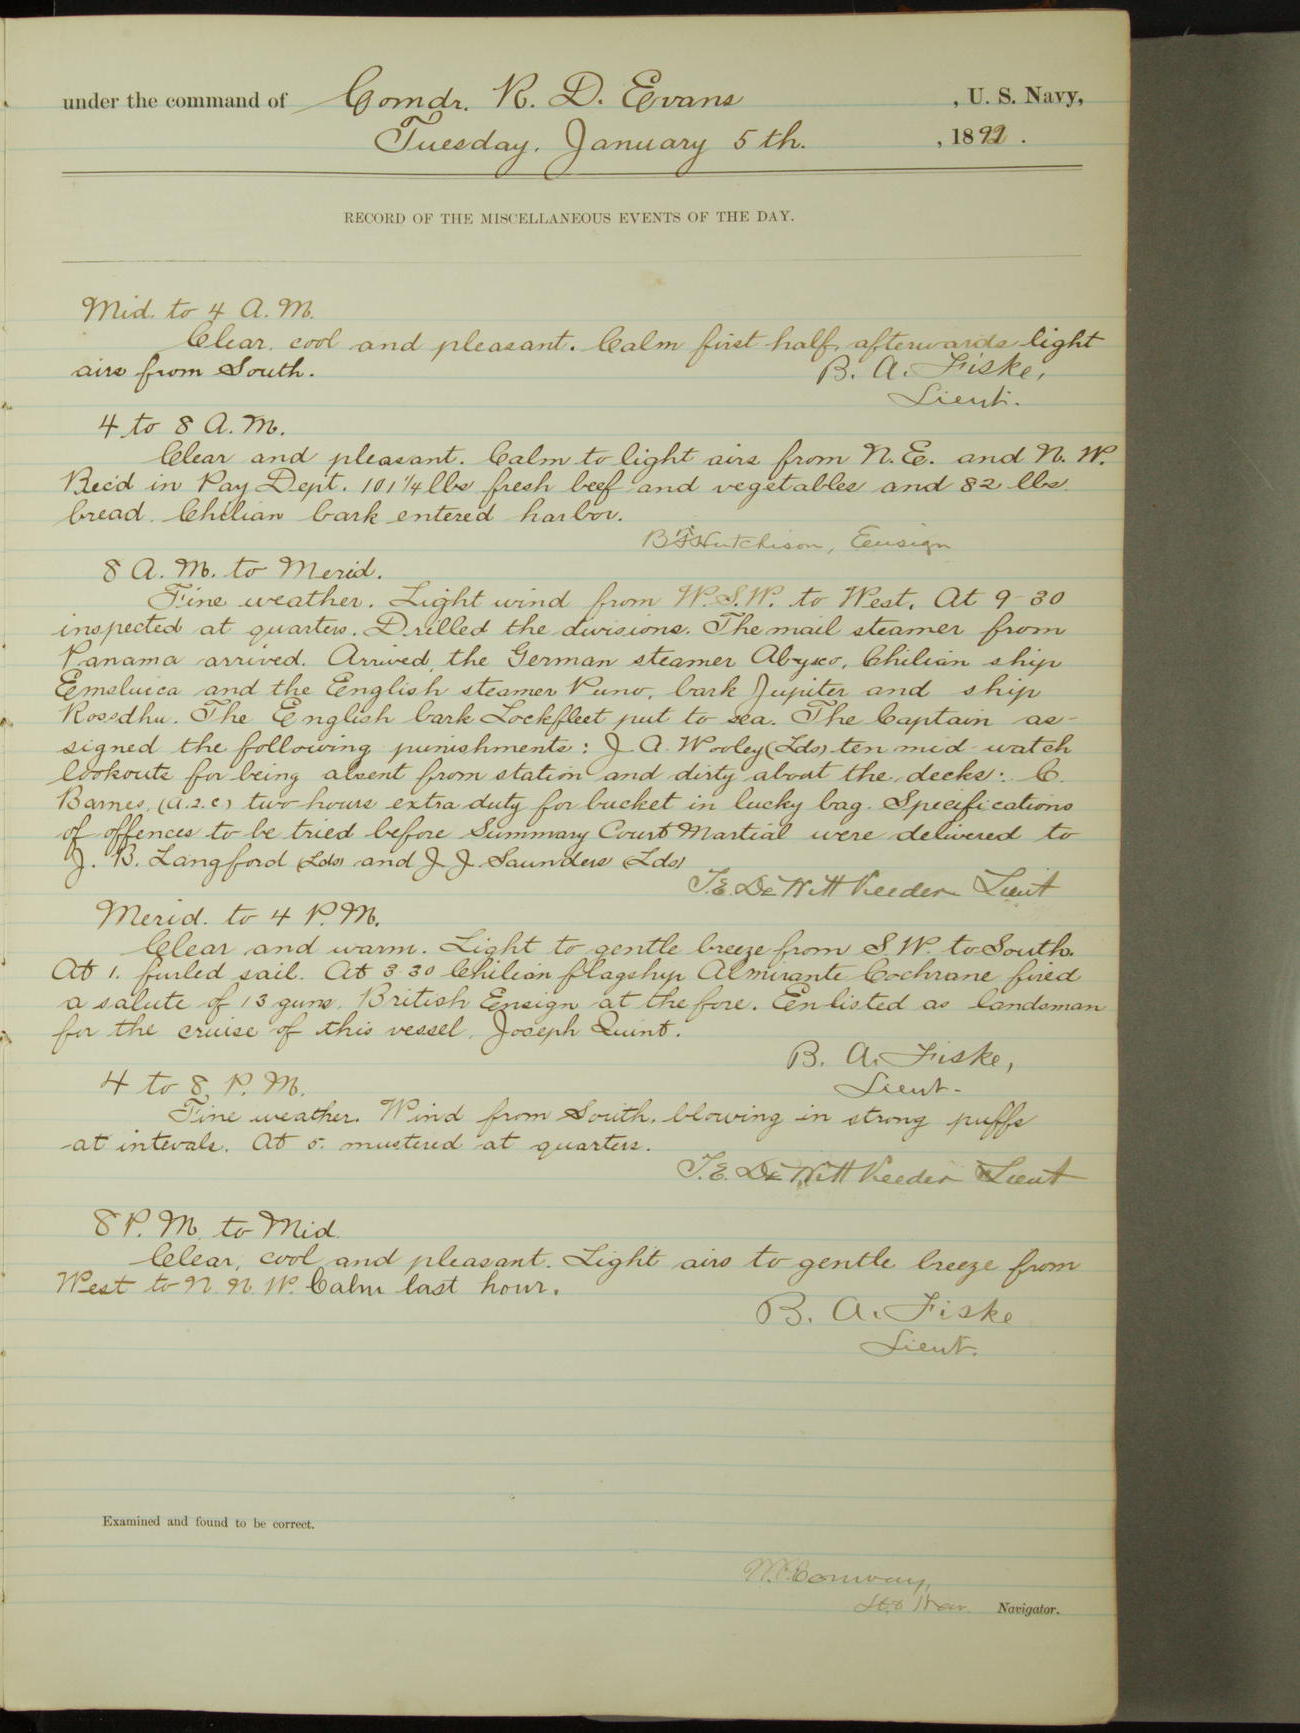 under the command of Comdr. R. D. Evans , U. S. Navy,
Tuesday, January 5th. , 1892 .
RECORD OF THE MISCELLANEOUS EVENTS OF THE DAY.
Mid. to 4 A. M.
Clear, cool and pleasant. Calm first half, afterwards light
airs from South. B. A. Fiske,
Lieut.
4 to 8 A. M.
Clear and pleasant. Calm to light airs from N. E. and N. W.
Rec'd in Pay Dept. 101 1/4 lbs fresh beef and vegetables and 82 lbs.
bread. Chilian bark entered harbor.
Hutchison, Ensign
8 A. M. to Merid.
Fine weather. Light wind from W. S. W. to West. At 9-30
inspected at quarters. Drilled the divisions. The mail steamer from
Panama arrived. Arrived, the German steamer Abysco, Chilian ship
Emsluica and the English steamer Puno, bark Jupiter and ship
Rossdhu. The English bark Lockfleet put to sea. The Captain as-
signed the following punishments: J. A. Wooley (Lds) ten mid-watch
lookouts for being absent from station and dirty about the decks: C.
Barnes, (a.2.c) two hours extra duty for bucket in lucky bag. Specifications
of offences to be tried before Summary Court Martial were delivered to
J. B. Langford (Lds) and J. J. Saunders (Lds)
T. E. DeWitt Veeder Lieut
Merid. to 4 P. M.
Clear and warm. Light to gentle breeze from S. W. to South.
At 1. furled sail. At 3-30 Chilian flagship Almirante Cochrane fired
a salute of 13 guns, British Ensign at the fore. Enlisted as landsman
for the cruise of this vessel, Joseph Quint.
B. A. Fiske,
Lieut.
4 to 8 P. M.
Fine weather. Wind from South, blowing in strong puffs
at intevals. At 5. mustered at quarters.
T. E. DeWitt Veeder Lieut
8 P. M. to Mid.
Clear, cool and pleasant. Light airs to gentle breeze from
West to N. N. W. Calm last hour.
B. A. Fiske
Lieut.
Examined and found to be correct.
Conway,
Navigator.